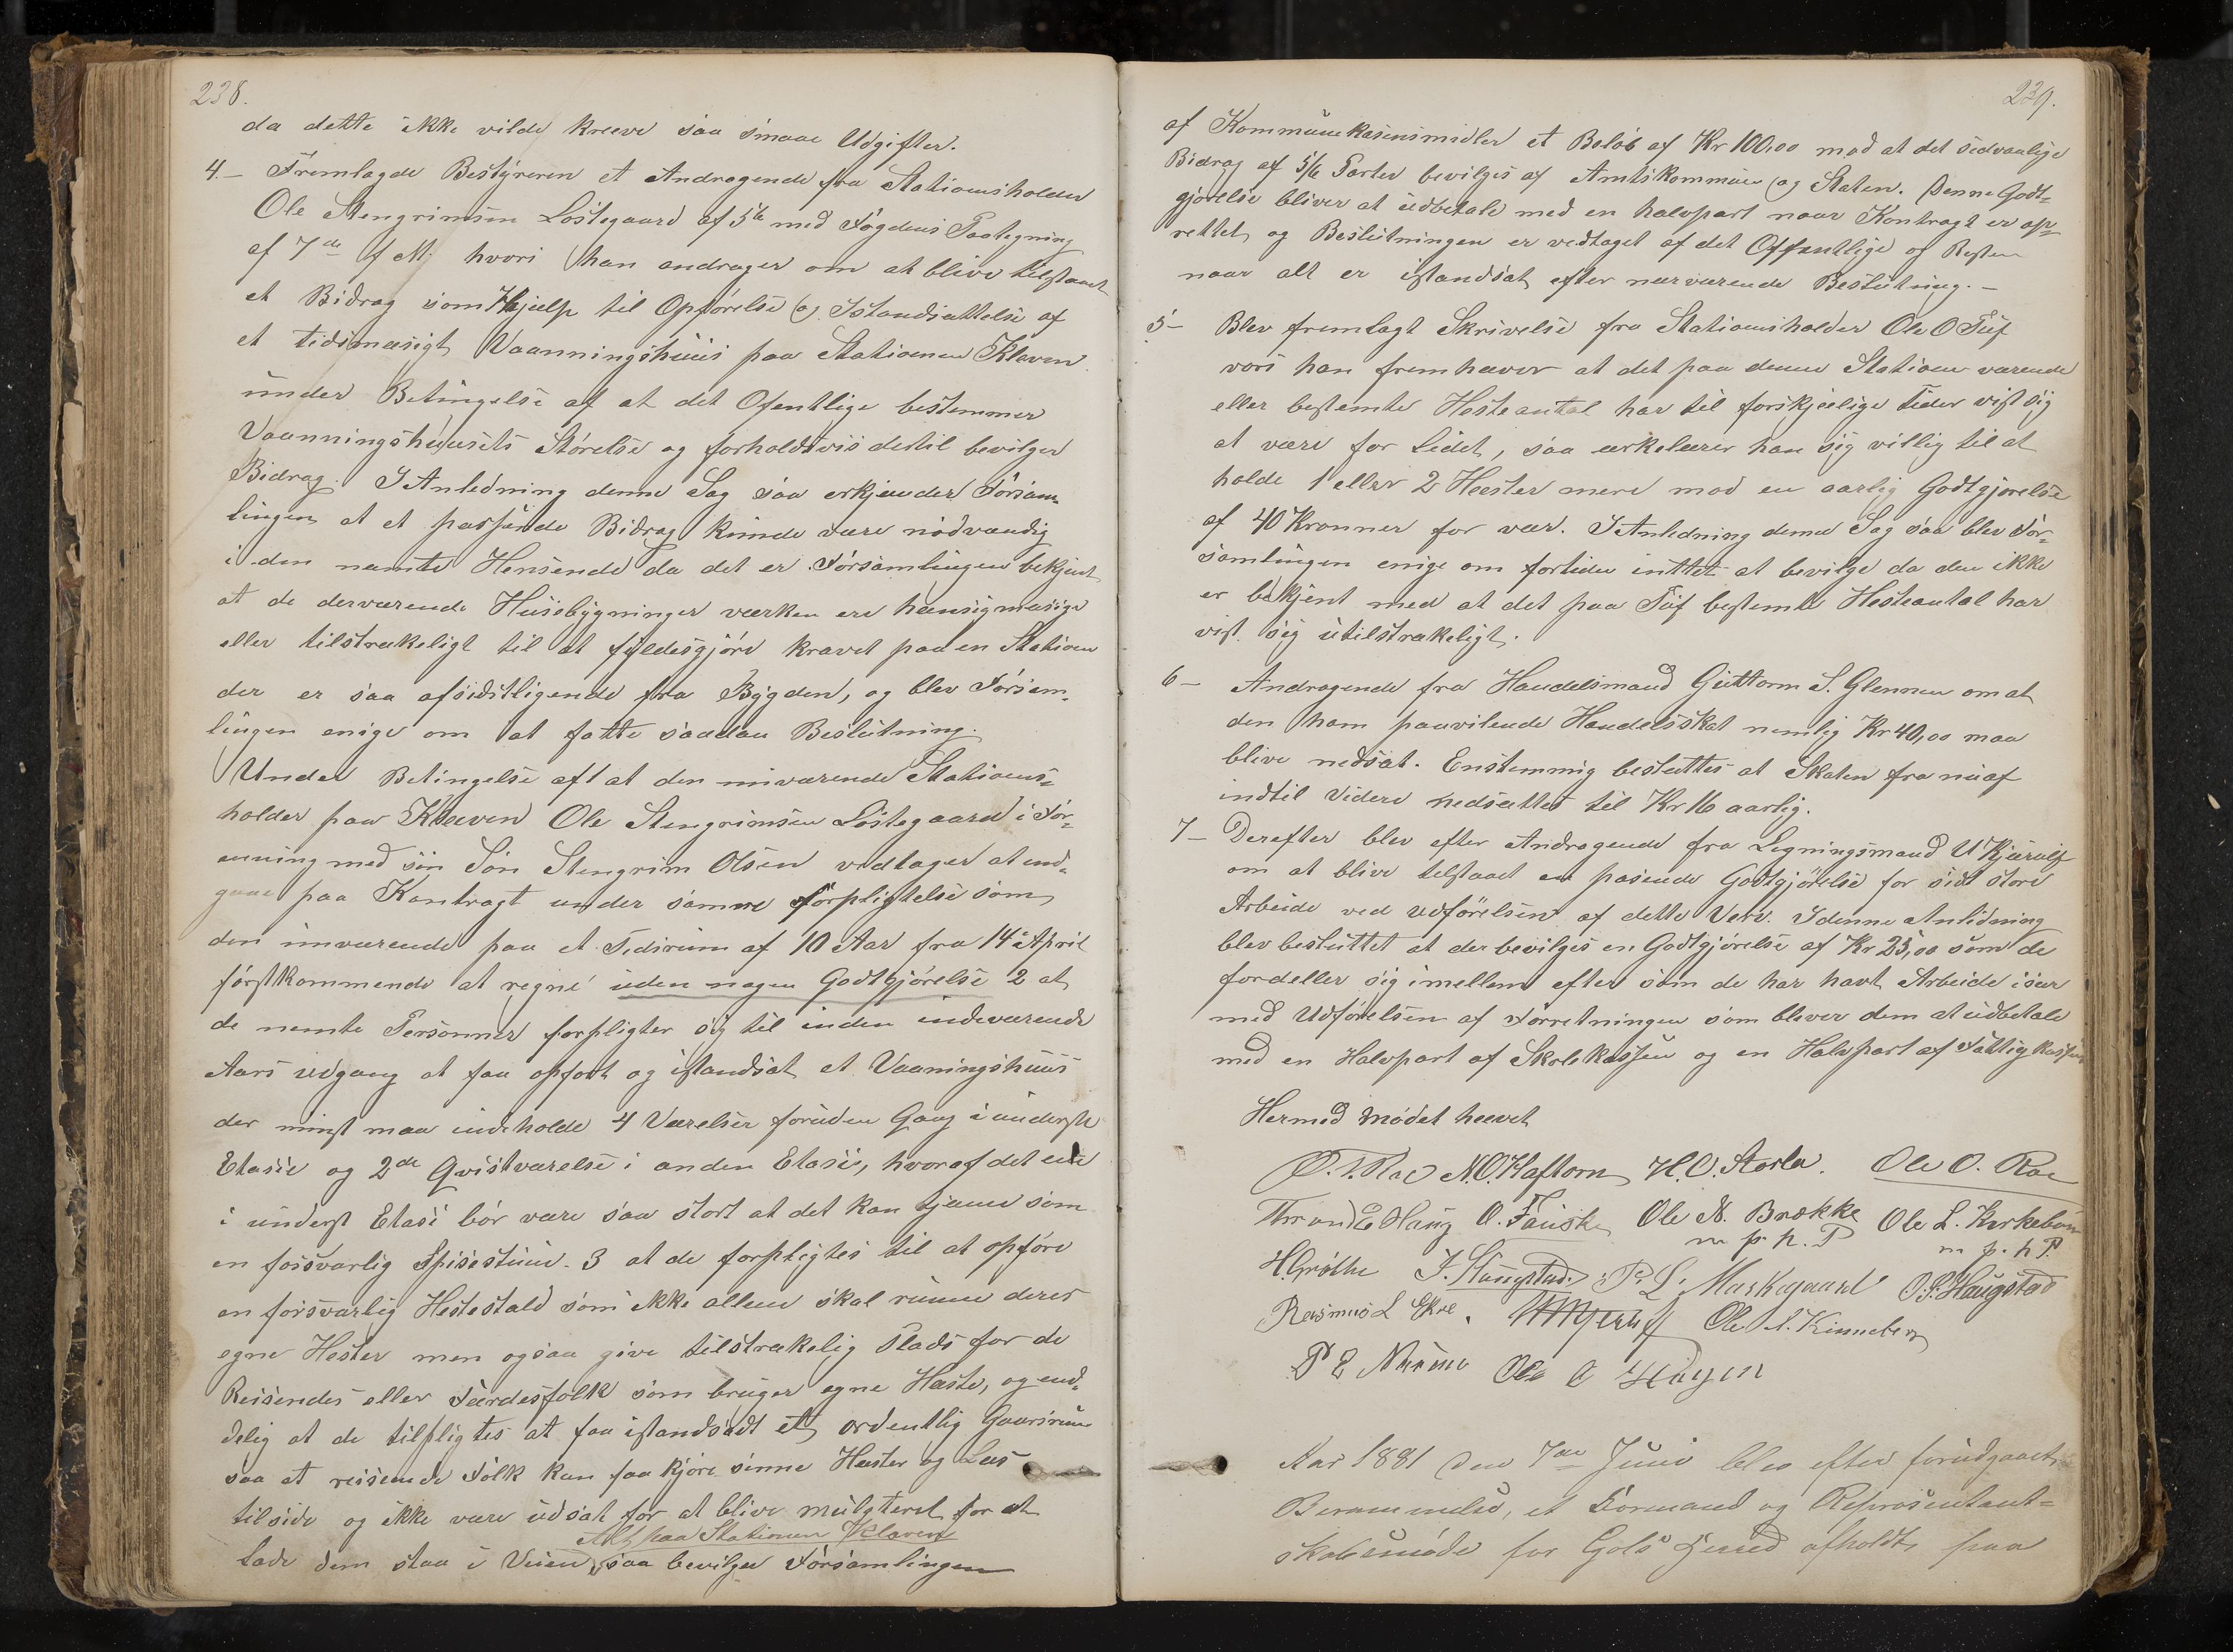 238.
da dette ikke vilde kreeve saa smaae Udgifter.
4.— Fremlagde Bestyreren et Andragende fra Stationsholder
Ole Stengrimsen Løstegaard af 5te med Fogdens Paategning
af 7de f M. hvori han andrager om at blive tilstaaet
et Bidrag som Hjælp til Opførelse og Istandsættelse af
et tidsmæsigt Vaanningshuus paa Stationen Kleven
under Betingelse af at det Ofentlige bestemmer
Vaanningshuusets Størelse og forholdsvis dertil bevilger
Bidrag. I Anledning denne Sag saa erkjender Forsam-
lingen at et passende Bidrag kunde være nødvændig
i den næmte Hensende da det er Forsamlingen bekjent
at de derværende Husebygninger værken ere hænsigmæsige
eller tilstrækeligt til at fyldesgjøre kravet paa en Station
der er saa afsidsliggende fra Bygden, og blev Forsam-
lingen enige om at fatte saadan Beslutning.
Under Betingelse aft at den nuværende Stations-
holder paa Kleven Ole Stengrimsen Løstegaard i For-
enning med sin Søn Stengrim Olsen vedtager at ind-
gaae paa Kontragt under samme forpligtelse som
den nuværende paa et Tidsrum af 10 Aar fra 14de April
førstkommende at regne uden nogen Godtgjørelse 2 at
de nemte Personner forpligter sig til inden indeværende
Aars udgang at faa opført og istandsat et Vaaningshuus
der minst maa indeholde 4 Værelser foruden Gang i underste
Etasie og 2de Qvistværelse i anden Etasie, hvoraf det ene
i underst Etasi bør være saa stort at det kan tjene som
en forsvarlig Spisestue. 3 at de forpligtes til at opføre
en forsvarlig Hestestald som ikke allene skal rumme deres
egne Hester men ogsaa give tilstrækelig Plads for de
Reisendes eller Færdesfolk som bruger egne Heste, og end-
delig at de tilpligtes at faa istandsadt et ordentlig Gaarsrum
saa at reisende Folk kan faa kjøre sinne Hæster og Læs
tilside og ikke være udsat for at blive mulgteret for at
Alt paa Stationen Kleven
lade dem staa i Veien, saa bevilger Forsamlingen
239.
af Kommunekasensmidler et Beløb af Kr 100,00 mod at det sedvanlige
Bidrag af 5/6 Parter bevilges af Amtskommunen og Staten. Denne Godt-
gjørelse bliver at udbetale med en halvpart naar Kontragt er op-
rettet og Beslutningen er vedtaget af det Offentlige og Resten
naar alt er istandsat efter nærværende Beslutning.—
5— Blev fremlagt Skrivelse fra Stationsholder Ole O Tuf
vori han fremhæver at det paa denne Station værende
eller bestemte Hesteantal har til forskjælige tider vist sig
at være for Lidet, saa ærkelærer han sig villig til at
holde 1 eller 2 Heester mere mod en aarlig Godtgjørelse
af 40 Kronner for vær. I Anledning denne Sag saa blev For-
samlingen enige om fortiden inttet at bevilge da den ikke
er bekjent med at det paa Tuf bestemte Hesteantal har
vist sig utilstrækeligt.
6— Andragende fra Handelsmand Guttorm S. Glennen om at
den ham paavilende Handelsskat nemlig Kr 40,00 maa
blive nedsat. Enstemmig besluttes at Skaten fra nu af
indtil Videre nedsættes til Kr 16 aarlig.
7— Derefter blev efter Andragende fra Legningsmand U Kjærulf
om at blive tilstaaet en pasende Godtgjørelse for sidt store
Arbeide ved udførelsen af dette Verv. I denne Anlidning
blev besluttet at der bevilges en Godtgjørelse af Kr 25,00 som de
fordeller sig imellem efter som de har havt Arbeide især
med Udførelsen af Forretningen som bliver dem at udbetale
med en Halvpart af Skolekassen og en Halvpart af Fattigkassen
Hermed Mødet heevet
N.O. Haftorn H.O. Storla. Ole O. Roe
Thrond E Haug O. Fauske Ole N. Brække Ole L. Kirkeboen
m p. h. P m p. h P.
H. Grøthe J. Haugstad. P. L. Markegaard O.P. Haugstad
Rasmus L Ekre. Ole A. Kinneberg
P E Ole O
Aar 1881 den 7de Juni blev efter forudgaaet
Berammelse, et Formand og Repræsentant-
skabsmøde for Gols Herred afholdt paa